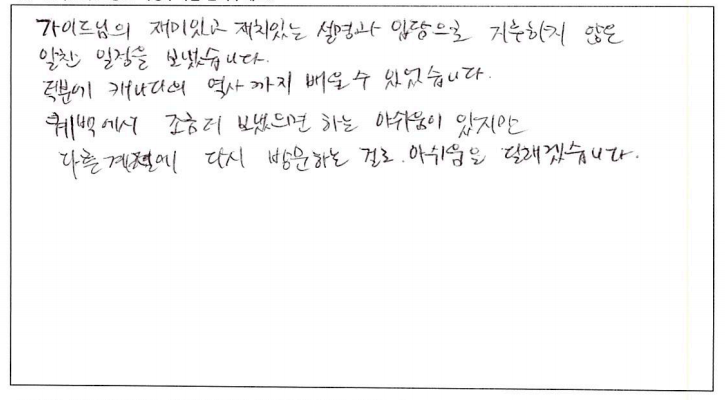 가이드님의 재미있고 재치있는 설명과 입담으로 지루하지 않은
알찬 일정을 보냈습니다.
덕분에 캐나다의 역사까지 배울 수 있었습니다.
퀘백에서 조금 더 보냈으면 하는 아쉬움이 있지만
다른 계절에 다시 방문하는 걸로 아쉬움을 달래겠습니다.